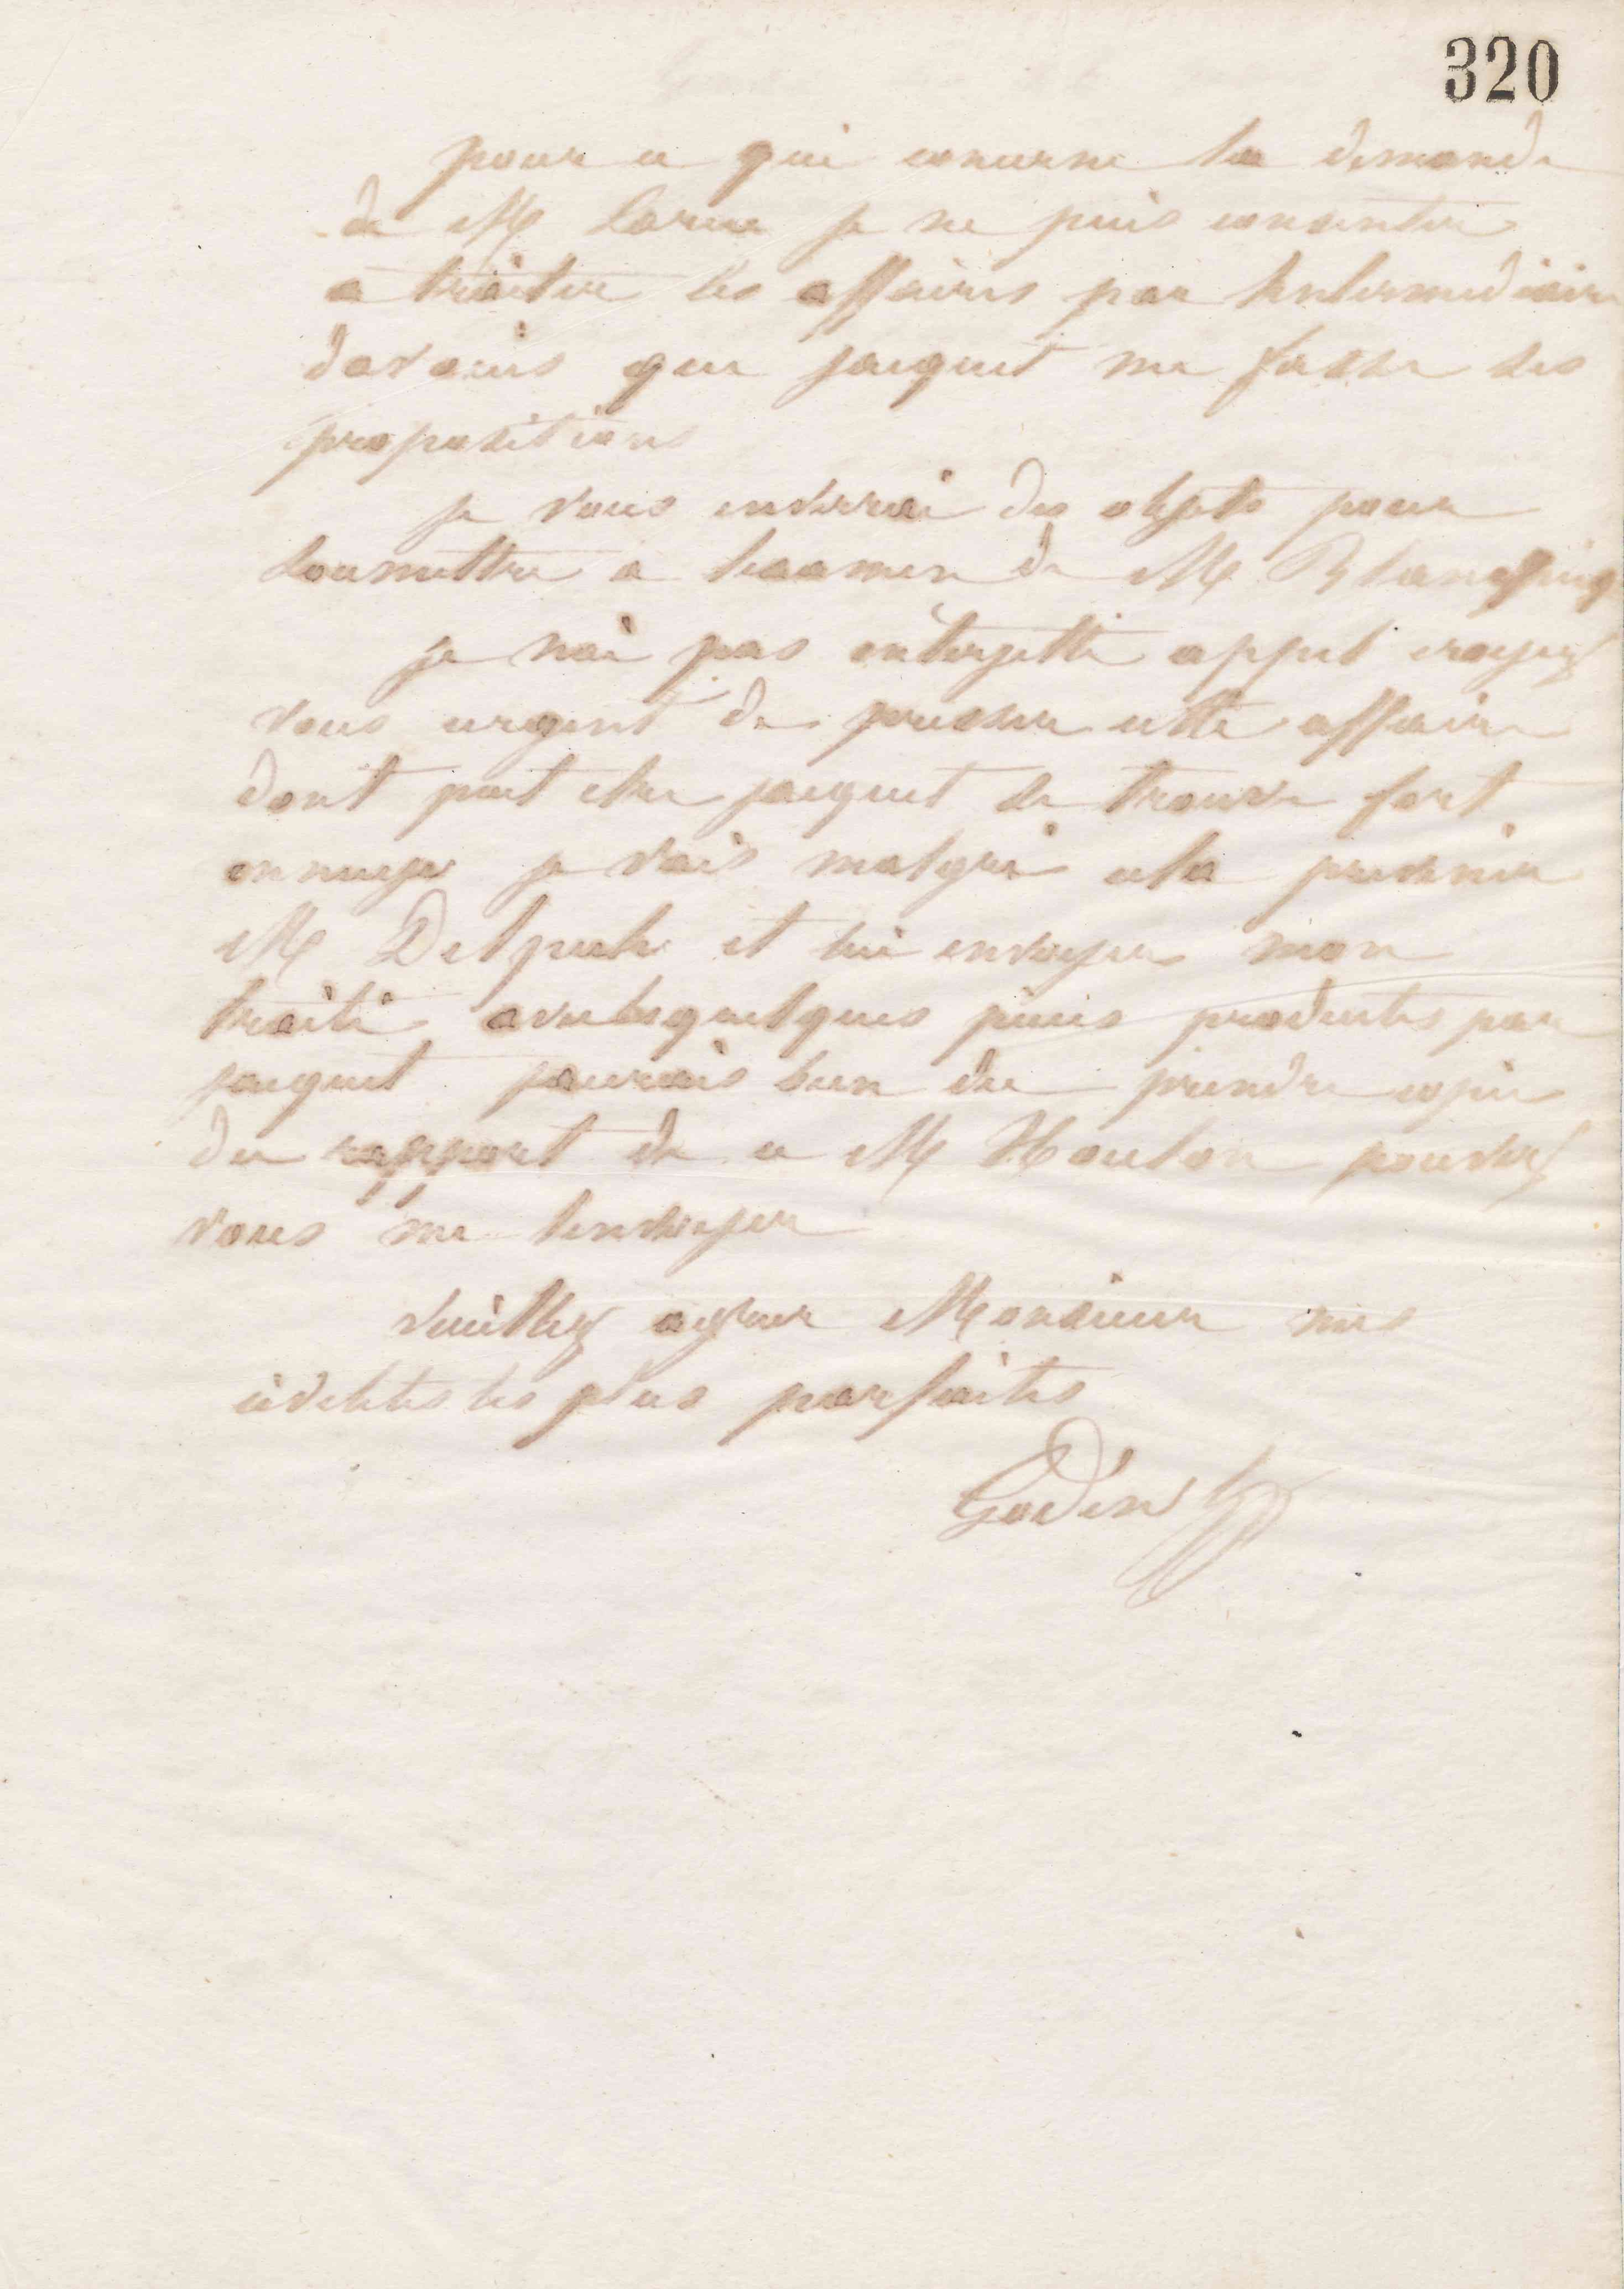 320
pour ce qui concerne la demande
de M Larue je ne puis consentir
a traiter les affaires par lintermediaire
davoués que jacquet me fasse des
propositions
je vous enverrai des objets pour
soumettre a lexamen de M
je nai pas interjetté appel croyez
vous urgent de presser cette affaire
dont peut etre jacquet se trouve fort
ennuyé je vais malgré cela prevenir
M Delpech et lui envoyer mon
traité avec les quelques pieces produites par
jacquet jaurais bien du prendre copie
du rapport de ce M Houlon pouvez
vous me lenvoyer
veuillez agreer Monsieur mes
civilités les plus parfaites
Godin